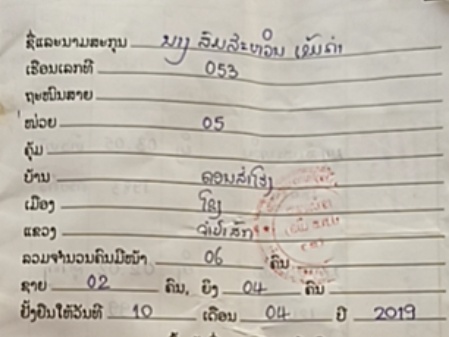 ຊື່ແລະນາມສະກຸນ ນາງ
ເຮືອນເລກທີ 053
ຖະໜົນສາຍ
ໜ່ວຍ 05
ຄຸ້ມ
ບ້ານ ດອນສຳໂຮງ
ເມືອງ ໂຂງ
ແຂວງ ຈຳປາສັກ
ລວມຈຳນວນຄົນມີໜ້າ 06 ຄົນ
ຊາຍ 02 ຄົນ, ຍິງ 04 ຄົນ
ຢັ້ງຢືນໃຫ້ວັນທີ 10 ເດືອນ 04 ປີ 2019